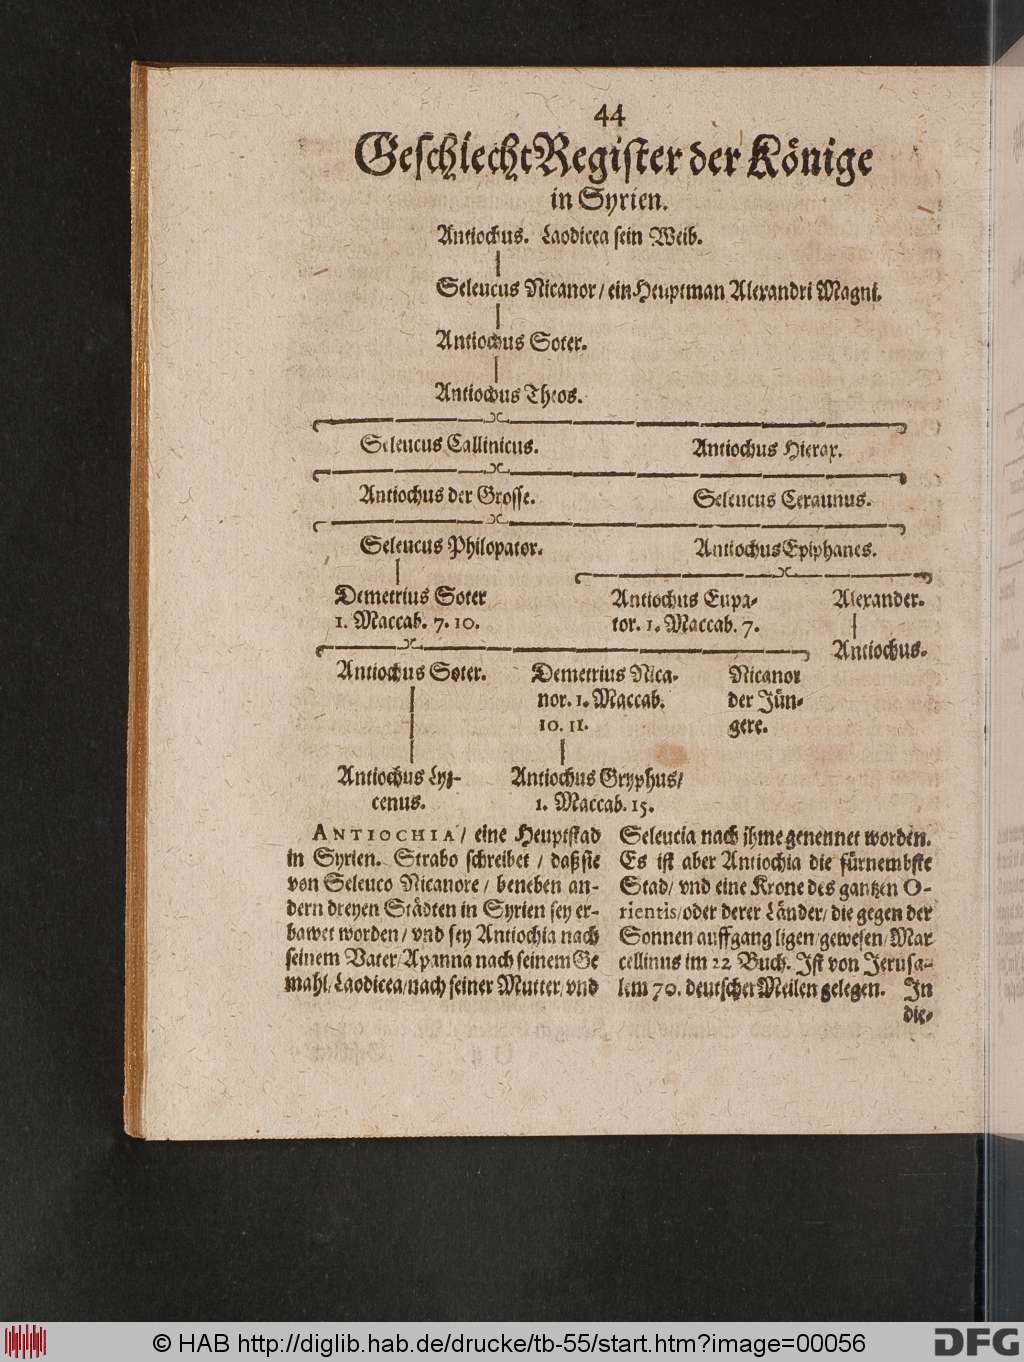 44
GeschlechtRegister der Könige
in Syrien.
Antiochus. Laodicea sein Weib.
Seleucus Nicanor / ein Heuptman Alexandri Magni.
Antiochus Soter.
Antiochus Theos.
Seleucus Callinicus. Antiochus Hierax.
Antiochus der Grosse. Seleucus Ceraunus.
Seleucus Philopator. Antiochus Epiphanes.
Demetrius Soter Antiochus Eupa- Alexander.
1. Maccab. 7. 10. tor. 1. Maccab. 7.
Antiochus.
Antiochus Soter. Demetrius Nica- Nicanor
nor. 1. Maccab. der Jün-
10. 11. gere.
Antiochus Cyz- Antiochus Gryphus/
cenus. 1. Maccab. 15.
ANTIOCHIA / eine Heuptstad
in Syrien. Strabo schreibet / daß sie
von Seleuco Nicanore / beneben an-
dern dreyen Städten in Syrien sey er-
bawet worden / vnd sey Antiochia nach
seinem Vater / Apanna nach seinem Ge
mahl / Laodicea / nach seiner Mutter / vnd
Seleucia nach ihme genennet worden.
Es ist aber Antiochia die fürnembste
Stad / vnd eine Krone des gantzen O-
rientis / oder derer Länder / die gegen der
Sonnen auffgang ligen / gewesen / Mar
cellinus im 22 Buch. Ist von Jerusa-
lem 70. deutscher Meilen gelegen. In
die-
© HAB http://diglib.hab.de/drucke/tb-55/start.htm?image=00056
DFG